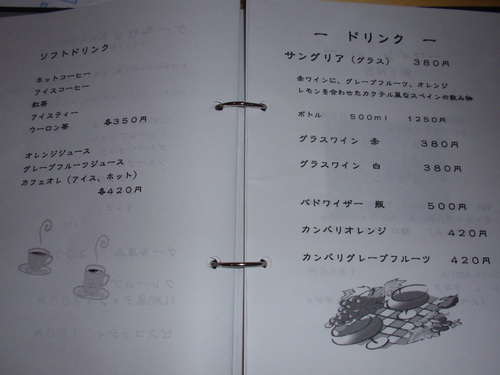 ソフトドリンク
ホットコーヒー
アイスコーヒー
紅茶
アイスティー
ウーロン茶 各350円
オレンジジュース
グレープフルーツジュース
カフェオレ(アイス、ホット)
各420円
ー ドリンク ー
サングリア(グラス) 380円
赤ワインに、グレープフルーツ、オレンジ
レモンを合わせたカクテル風なスペインの飲み物
ボトル 500ml 1250円
グラスワイン 赤 380円
グラスワイン 白 380円
バドワイザー 瓶 500円
カンバリオレンジ 420円
カンバリグレープフルーツ 420円